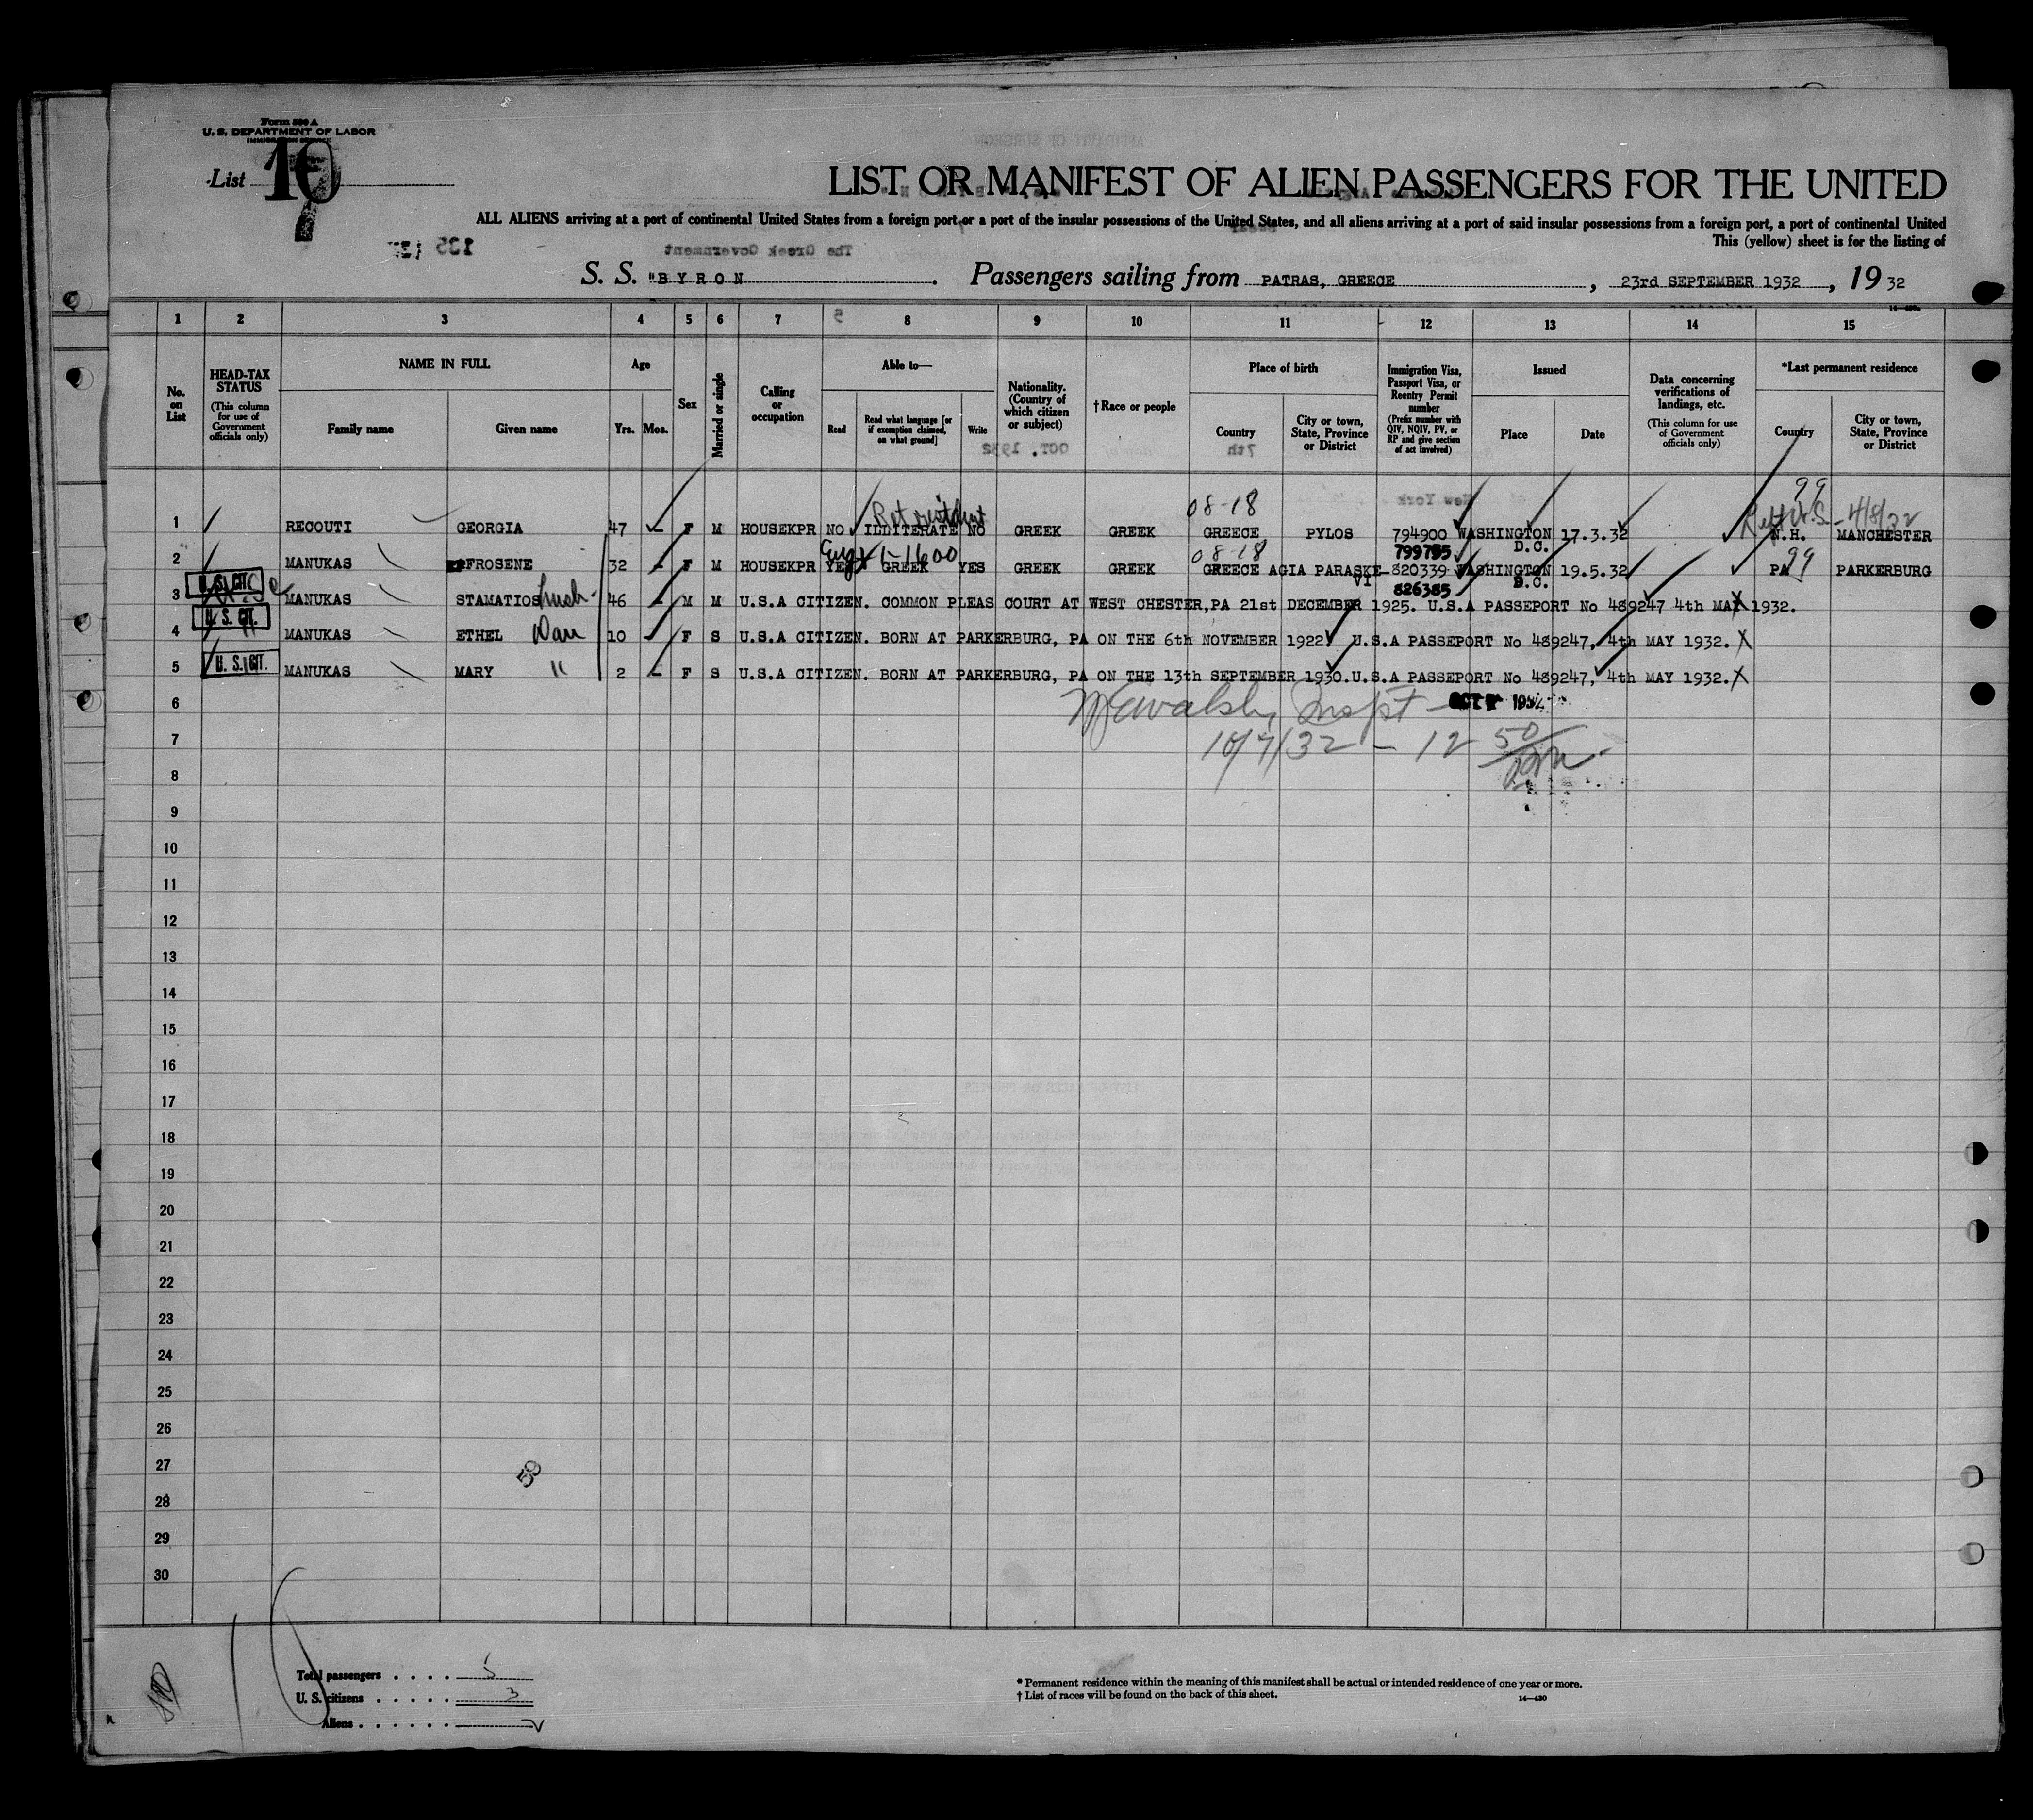 Form 500 A
U. S. DEPARTMENT OF LABOR
IMMIGRATION SERVICE
List 10
LIST OR MANIFEST OF ALIEN PASSENGERS FOR THE UNITED
ALL ALIENS arriving at a port of continental United States from a foreign port or a port of the insular possessions of the United States, and all aliens arriving at a port of said insular possessions from a foreign port, a port of continental United
This (yellow) sheet is for the listing of
135
The Greek Government
S. S. "BYRON. Passengers sailing from PATRAS, GREECE, 23rd SEPTEMBER 1932, 19 32
1 2 3 4 5 6 7 8 9 10 11 12 13 14 15
No. on List
HEAD-TAX STATUS
(This column for use of Government officials only)
NAME IN FULL
Family name
Given name
Age
Yrs. Mos.
Sex
Married or single
Calling or occupation
Able to—
Read
Read what language [or if exemption claimed, on what ground]
Write
Nationality. (Country of which citizen or subject)
OCT. 1932
†Race or people
Place of birth
Country
7th
City or town, State, Province or District
Immigration Visa, Passport Visa, or Reentry Permit number
(Prefix number with QIV, NQIV, PV, or RP and give section of act involved)
Issued
Place
Date
Data concerning verifications of landings, etc.
(This column for use of Government officials only)
*Last permanent residence
Country
City or town, State, Province or District
New York
08-18
99
1 RECOUTI GEORGIA 47 F M HOUSEKPR NO ILLITERATE NO GREEK GREEK GREECE PYLOS 794900 WASHINGTON D.C. 17.3.32 N.H. MANCHESTER
799785
08-18
99
2 MANUKAS EFFROSENE 32 F M HOUSEKPR YES GREEK YES GREEK GREEK GREECE AGIA PARASKE-VI 820339 WASHINGTON D.C. 19.5.32 PA PARKERBURG
826385
U. S. CIT.
3 MANUKAS STAMATIOS 46 M M U.S.A CITIZEN. COMMON PLEAS COURT AT WEST CHESTER,PA 21st DECEMBER 1925. U.S.A PASSEPORT No 489247 4th MAY 1932.
U. S. CIT.
4 MANUKAS ETHEL Dau 10 F S U.S.A CITIZEN. BORN AT PARKERBURG, PA ON THE 6th NOVEMBER 1922 U.S.A PASSEPORT No 489247, 4th MAY 1932. X
U. S. CIT.
5 MANUKAS MARY " 2 F S U.S.A CITIZEN. BORN AT PARKERBURG, PA ON THE 13th SEPTEMBER 1930.U.S.A PASSEPORT No 489247, 4th MAY 1932. X
6 Walsh, Inspt - OCT 7 1932
7 10/7/32 - 12 50
8
9
10
11
12
13
14
15
16
17
18
19
20
21
22
23
24
25
26
27
28
29
30
Total passengers . . . . 5
U. S. citizens . . . . . 3
Aliens . . . . . .
* Permanent residence within the meaning of this manifest shall be actual or intended residence of one year or more.
† List of races will be found on the back of this sheet.
14—430